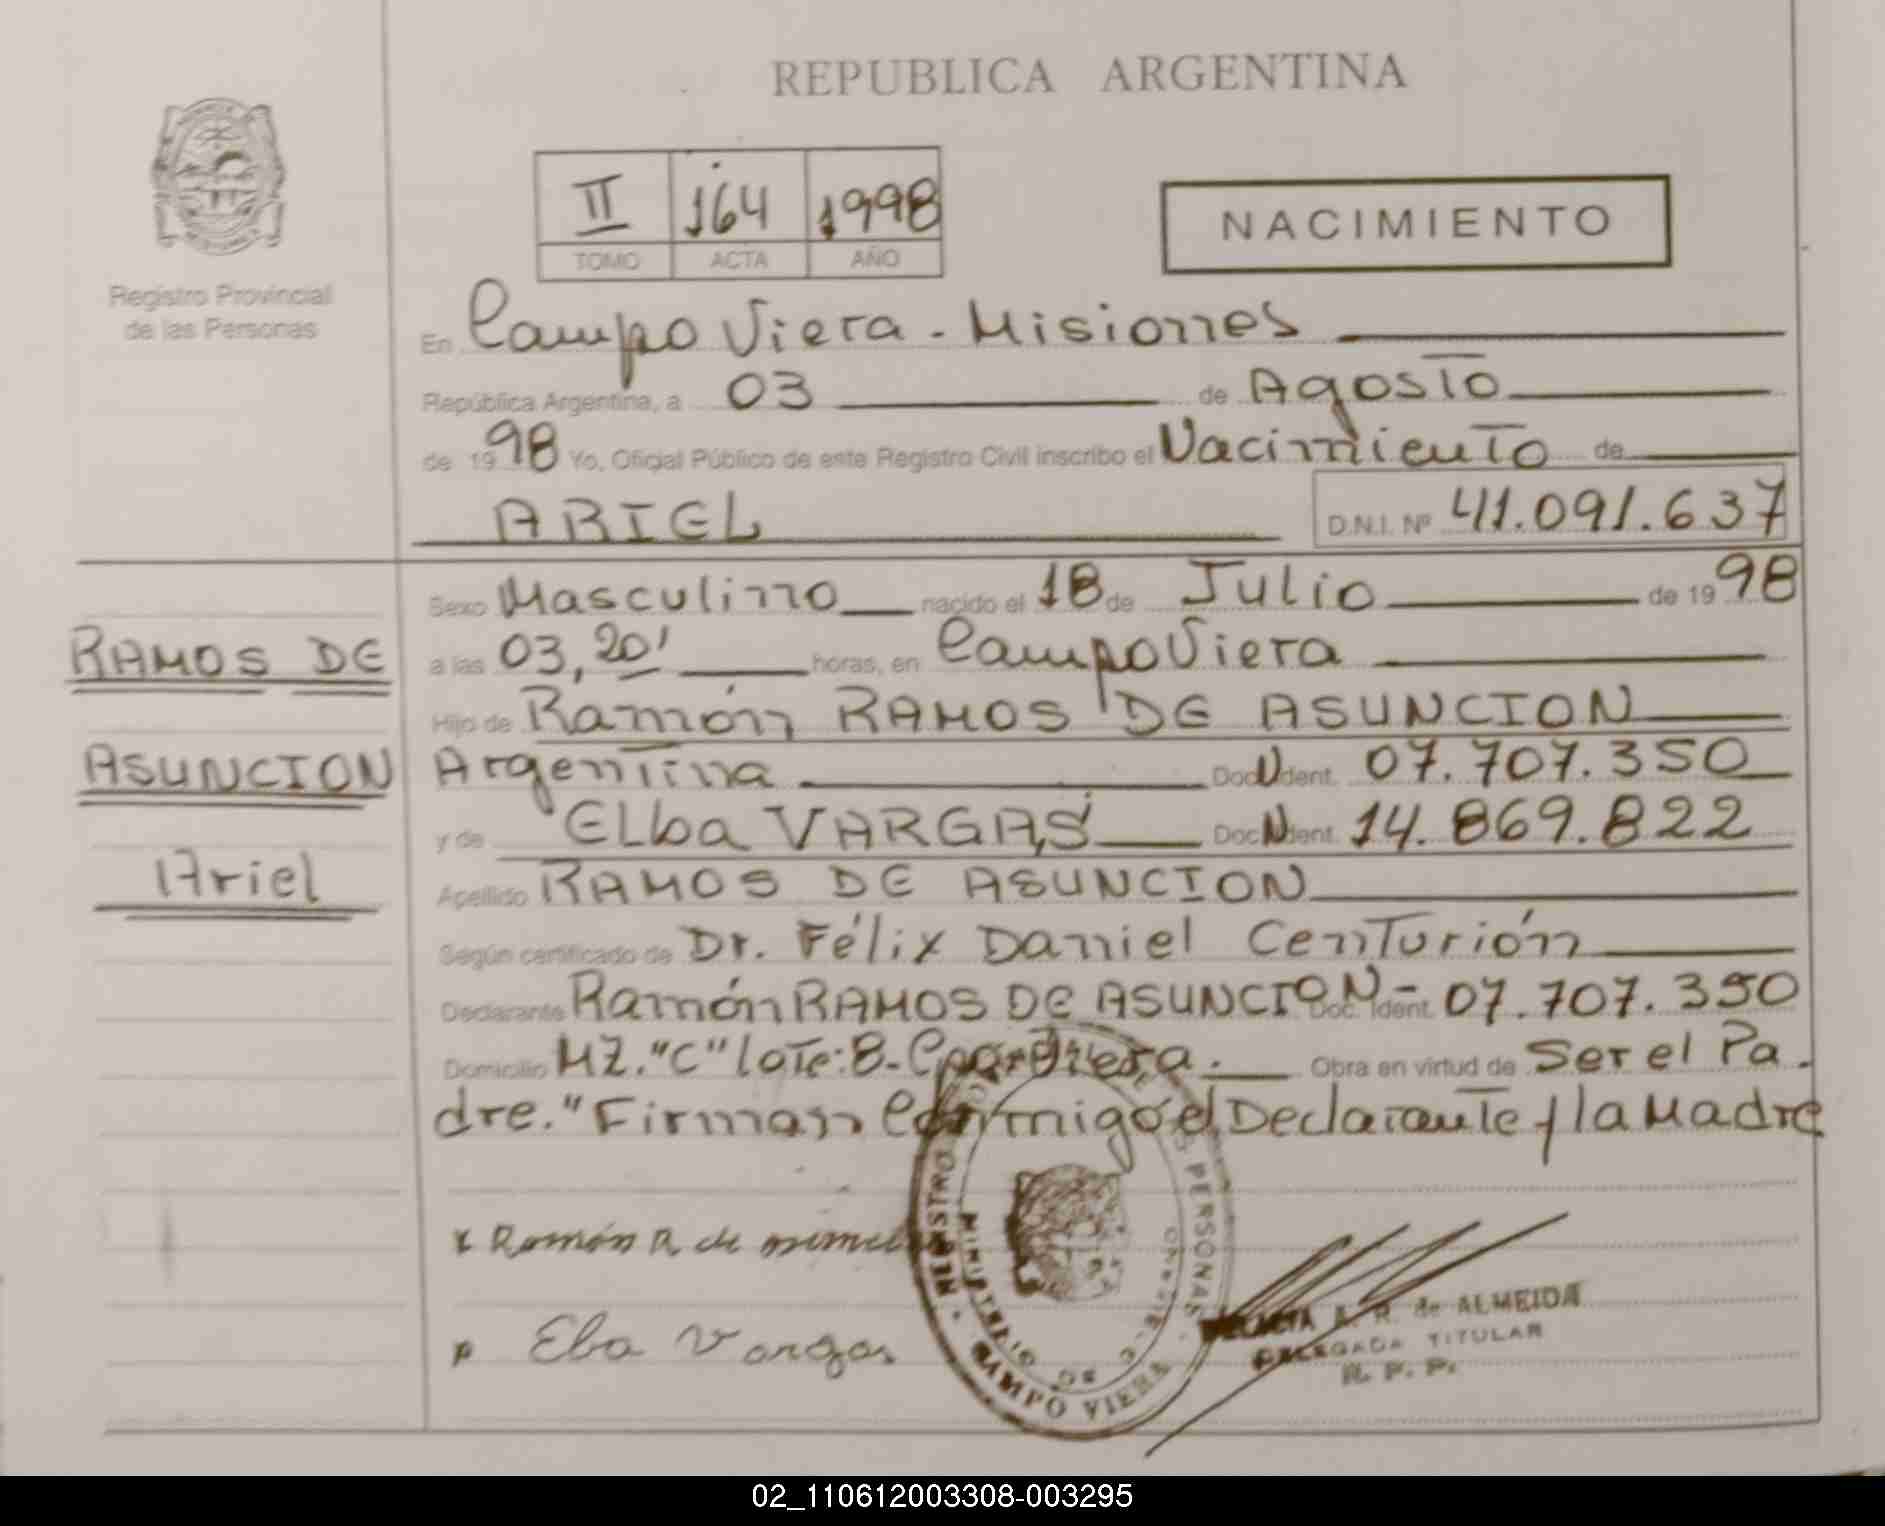 REPUBLICA ARGENTINA
II 164 1998
TOMO ACTA AÑO
NACIMIENTO
Registro Provincial
de las Personas
En Campo Viera - Misiones
República Argentina, a 03 de Agosto
de 1998 Yo, Oficial Público de este Registro Civil inscribo el Nacimiento de
ARIEL D.N.I. Nº 41.091.637
Sexo Masculino nacido el 18 de Julio de 1998
RAMOS DE
a las 03,20' horas, en Campo Viera
Hijo de Ramón RAMOS DE ASUNCION
ASUNCION
Argentina Doc. Ident. 07.707.350
y de ELba VARGAS Doc. Ident. 14.869.822
Ariel
Apellido RAMOS DE ASUNCION
Según certificado de Dr. Félix Daniel Centurión
Declarante Ramón RAMOS DE ASUNCION- Doc. Ident. 07.707.350
Domicilio MZ. "C" lote: 8- Cpo. Viera. Obra en virtud de Ser el Pa.
dre." Firman Conmigo el Declarante y la Madre
x Ramón R de
Elba Vargas
PERSONAS
CAMPO VIERA
A. R. de ALMEIDA
DELEGADA TITULAR
R. P. P.
02_110612003308-003295